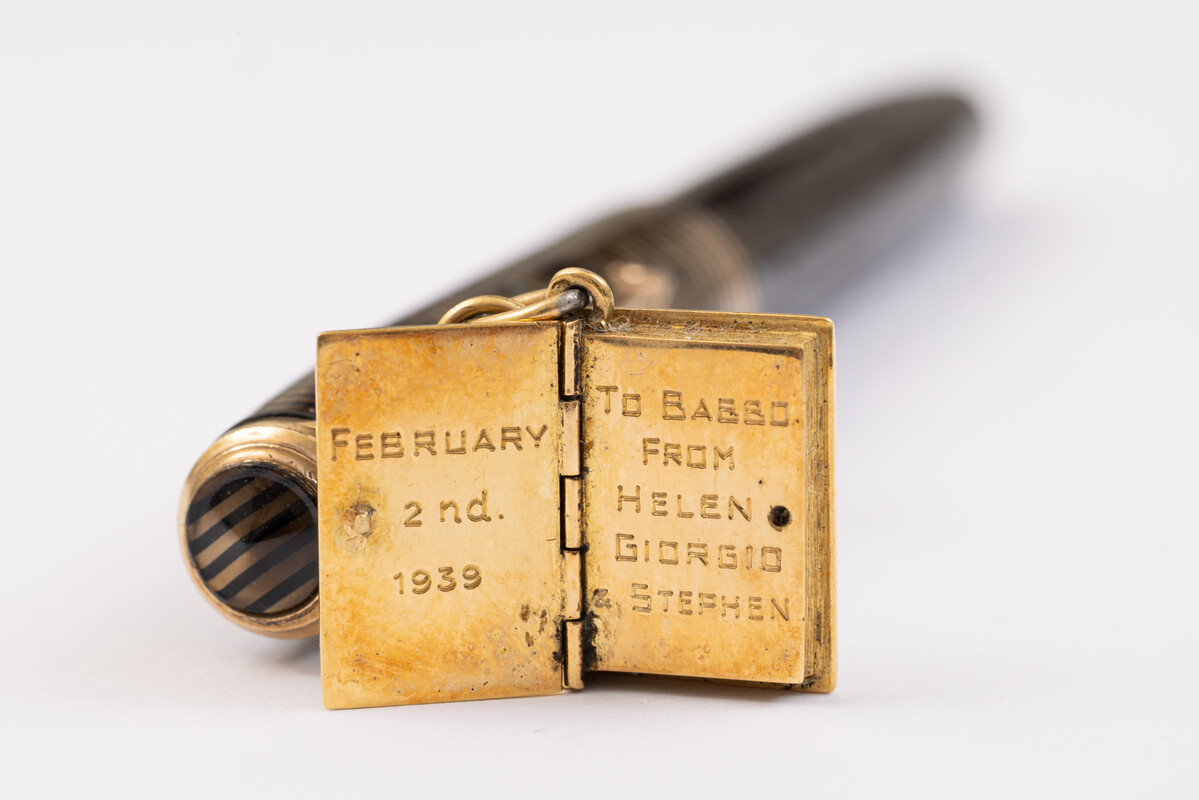 FEBRUARY
2nd.
1939
TO BABBO
FROM
HELEN
GIORGIO
& STEPHEN